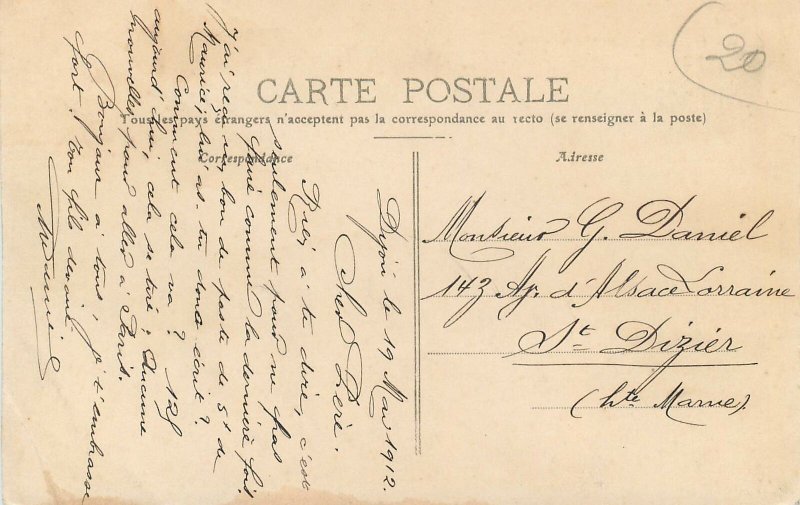 20
CARTE POSTALE
Tous les pays étrangers n'acceptent pas la correspondance au recto (se renseigner à la poste)
Correspondance
Adresse
Dijon le 19 Mai 1912.
Cher Père.
Rien à te dire, c'est
seulement pour ne pas
faire comme la dernière fois.
J'ai reçu un bon de poste de 5f de
Maurice, lui as-tu donc écrit?
Comment cela va? 125
aujourd'hui, cela se tire; Aucune
nouvelles pour aller à Paris.
Bonjour à tous, je t'embrasse
fort. Ton fils
Monsieur G. Daniel
143 Av. d'Alsace Lorraine
St Dizier
(Hte Marne)